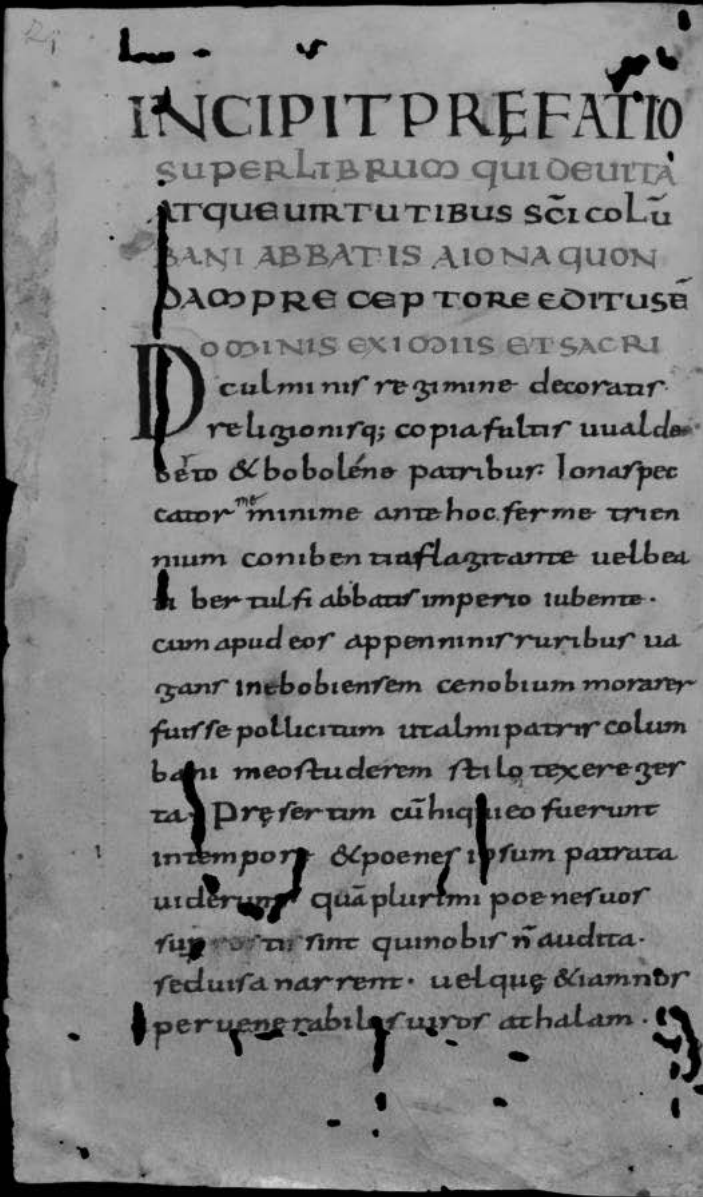 INCIPIT PRĘFATIO
SUPER LIBRUM QUI DE UITA
ATQUE UIRTUTIBUS SC̄I COLŪ
BANI ABBATIS A IONA QUON
DAM PRECEPTORE EDITUS Ē
DOMINIS EXIMIIS ET SACRI
culminis regimine decoratis.
religionisq; copia fultis uualde
berto & boboléno patribus. Ionas pec
cator me minime ante hoc ferme trien
nium conibentia flagitante uel bea
ti bertulfi abbatis imperio iubente.
cum apud eos appenninis ruribus ua
gans in ebobiensem cenobium morarer
fuisse pollicitum ut almi patris colum
bani meo studerem stilo texere ges
ta. Pręsertim cū hi qui eo fuerunt
in tempore & poenes ipsum patrata
uiderunt quā plurimi poenes uos
sint qui nobis n̄ audita.
sed uisa narrent. uel quę & iam nos
per uenerabiles uiros athalam.